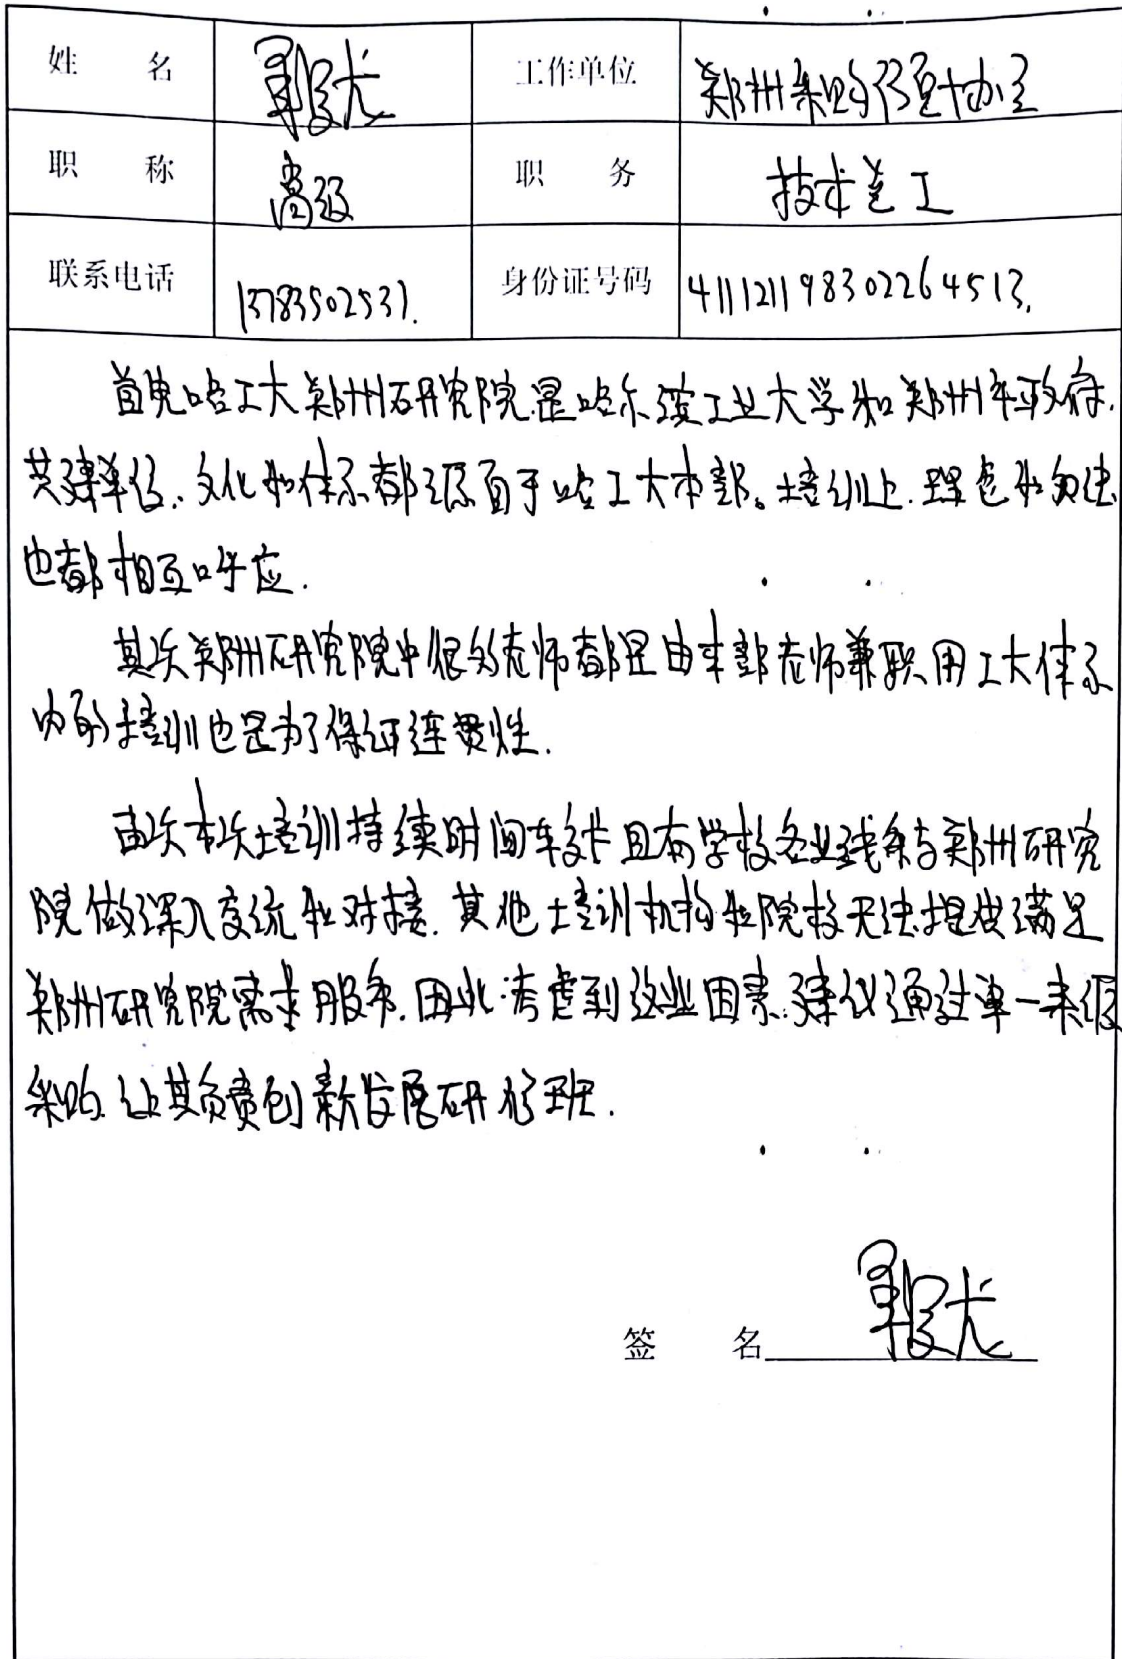 姓 名 工作单位
职 称 高级 职 务 技术总工
联系电话 13783502531. 身份证号码 411121198302264513.
首先哈工大郑州研究院是哈尔滨工业大学和郑州市政府.
共建单位.文化和体系都源自于哈工大本部。培训上.理念和方法
也都相互呼应.
其次郑州研究院中很多老师都是由本部老师兼职用工大体系
内的培训也是为了保证连贯性.
再次本次培训持续时间较长且有学校各业务线条与郑州研究
院做深入交流和对接.其他培训机构和院校无法提供满足
郑州研究院需求服务.因此考虑到这些因素.建议通过单一来源
采购.让其负责创新发展研修班.
签 名